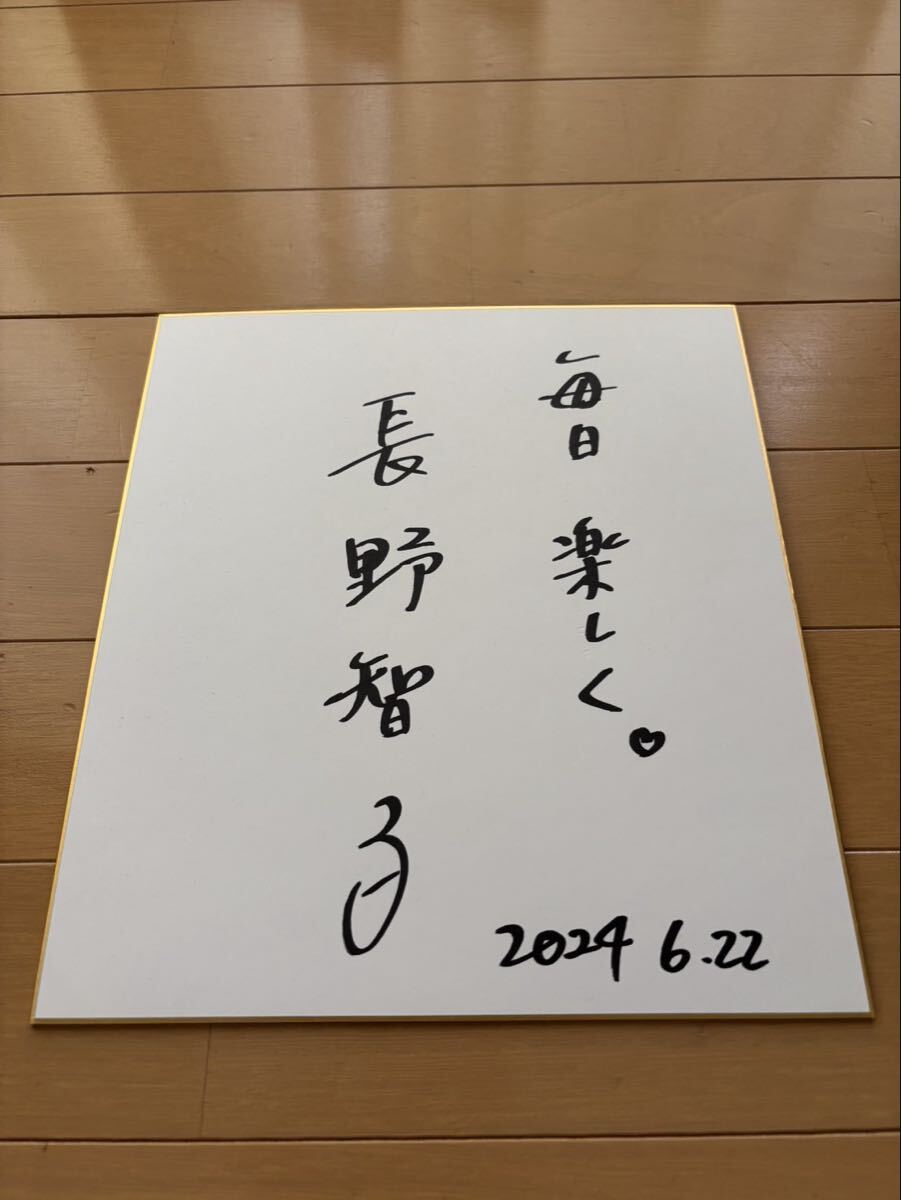 毎日楽しく。
長野智子
2024 6.22